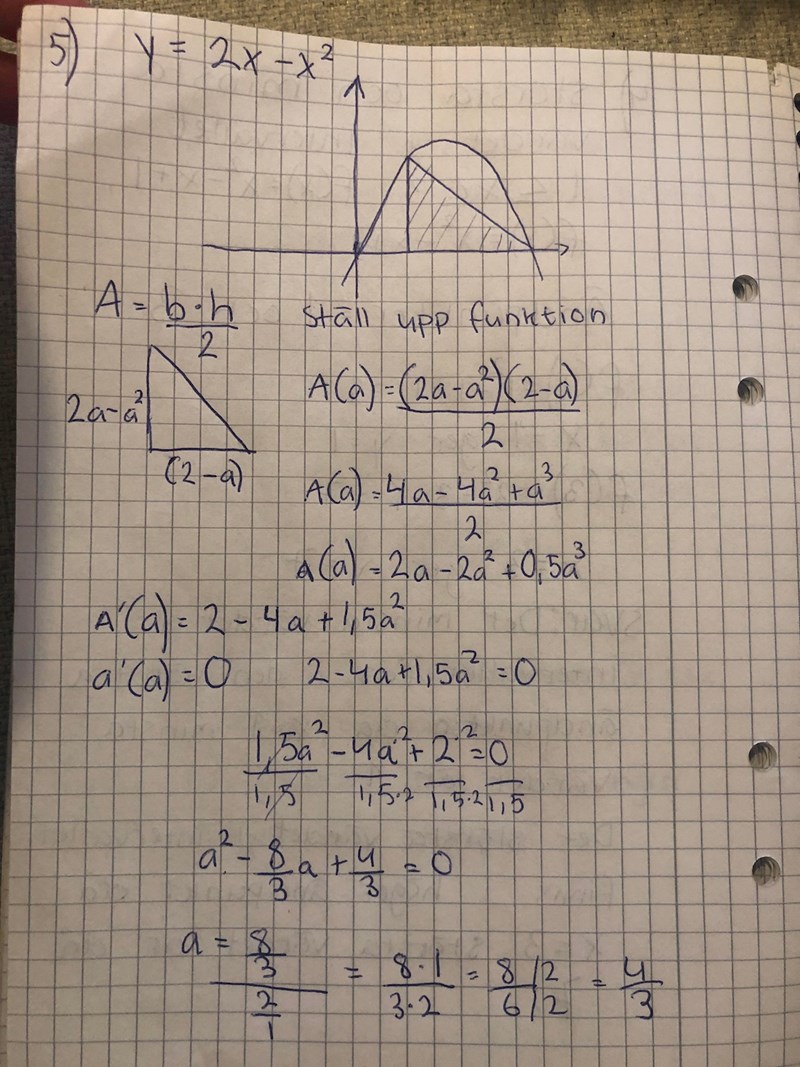 5) y = 2x - x²
A = b·h / 2
Ställ upp funktion
2a-a²
(2-a)
A(a) = (2a-a²)(2-a) / 2
A(a) = 4a - 4a² + a³ / 2
A(a) = 2a - 2a² + 0,5a³
A'(a) = 2 - 4a + 1,5a²
a'(a) = 0 2-4a+1,5a² = 0
1,5a² / 1,5 - 4a·² / 1,5·2 + 2·² / 1,5·2 = 0 / 1,5
a² - 8/3 a + 4/3 = 0
a = 8/3 / 2/1 = 8·1 / 3·2 = 8/2 / 6/2 = 4/3